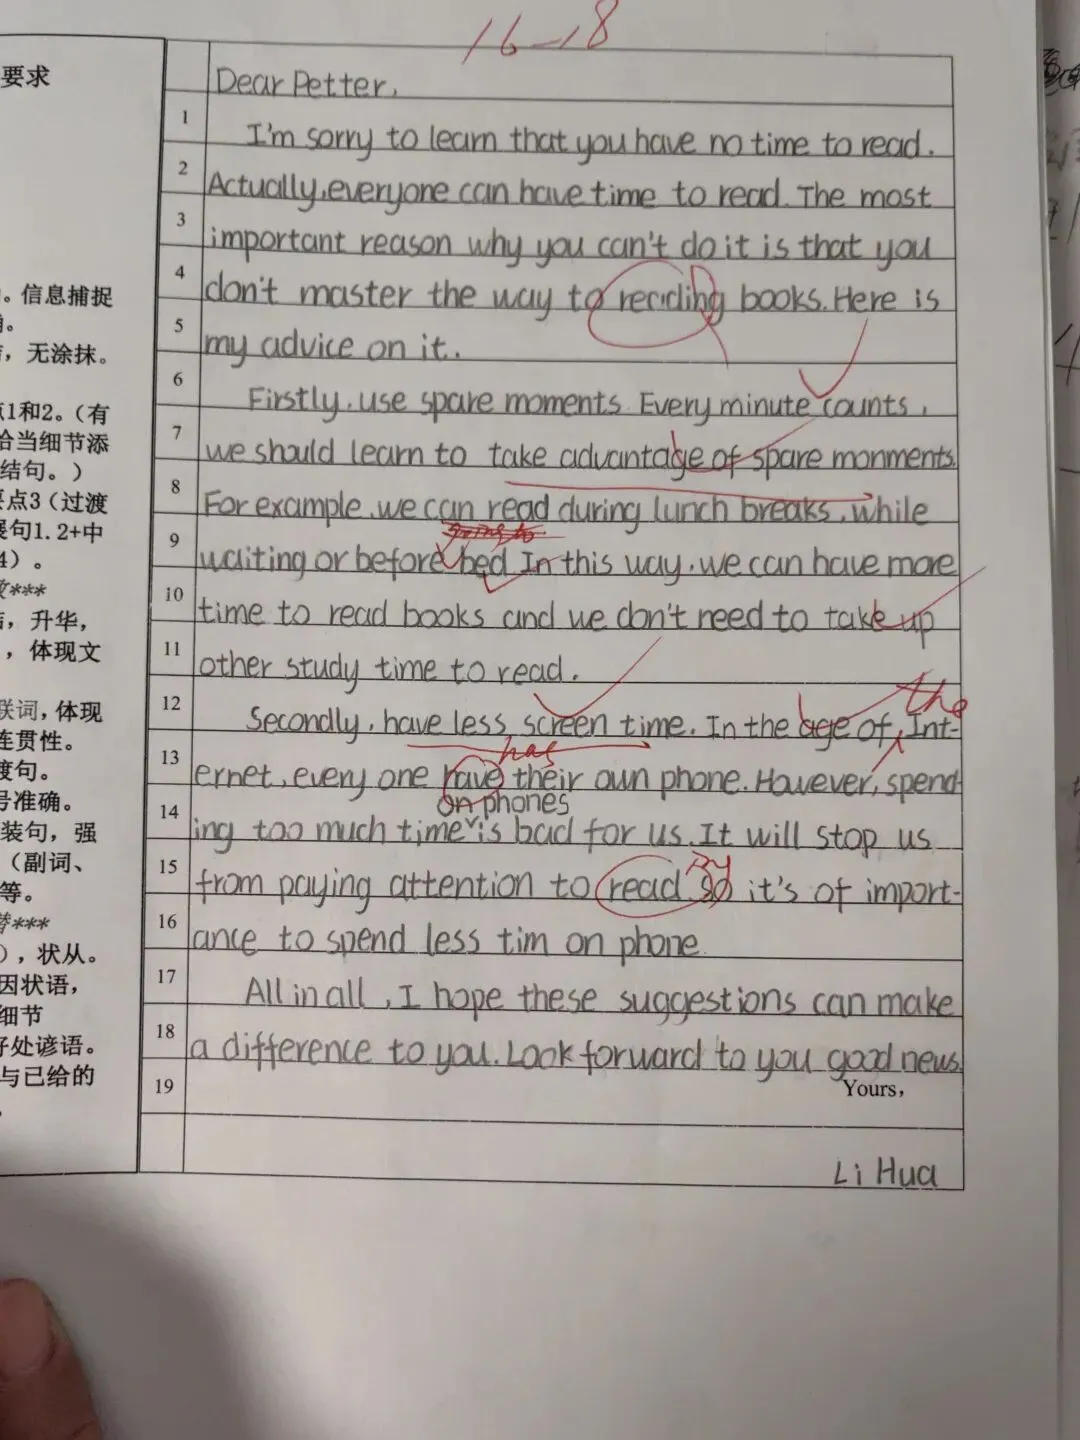 16-18
要求
Dear Petter,
1
I'm sorry to learn that you have no time to read.
2
Actually, everyone can have time to read. The most
3
important reason why you can't do it is that you
4
don't master the way to reading books. Here is
5
my advice on it.
6
Firstly, use spare moments. Every minute counts,
7
we should learn to take advantage of spare monments.
8
For example, we can read during lunch breaks, while
9
waiting or before bed. In this way, we can have more
10
time to read books and we don't need to take up
11
other study time to read.
the
12
Secondly, have less screen time. In the age of Int-
has
13
ernet, every one have their own phone. However, spend-
on phones
14
ing too much time is bad for us. It will stop us
15
from paying attention to read. So it's of import-
16
ance to spend less tim on phone.
17
All in all, I hope these suggestions can make
18
a difference to you. Look forward to you good news.
19
Yours,
Li Hua
。信息捕捉
，无涂抹。
1和2。（有
恰当细节添
结句。）
点3（过渡
句1.2+中
4）。
***
，升华，
，体现文
联词，体现
连贯性。
渡句。
号准确。
装句，强
（副词、
等。
替***
），状从。
因状语，
细节
好处谚语。
与已给的